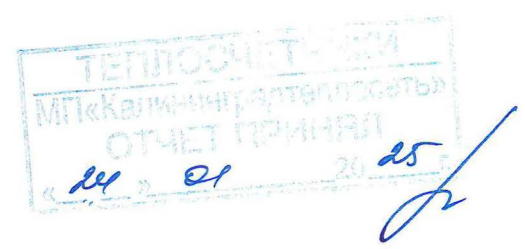 ТЕПЛОСЧЕТЧИКИ
МП«Калининградтеплосеть»
ОТЧЕТ ПРИНЯЛ
« 24 » 01 2025 г.